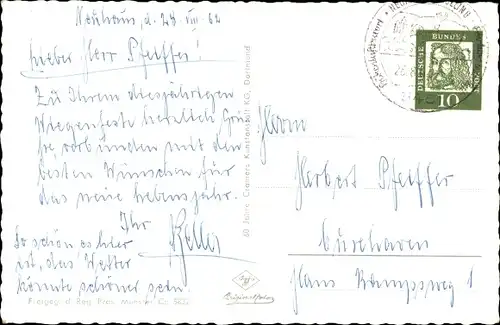 Neuhaus, d. 24. VIII. 62
Lieber Herr Pfeiffer!
Zu Ihrem diesjährigen
Wiegenfeste herzlich Grü-
ße, verbunden mit den
besten Wünschen für
das neue Lebensjahr.
Ihr
Keller
So schön es hier
ist, das Wetter
könnte schöner sein.
60 Jahre Cramers Kunstanstalt KG., Dortmund
DEUTSCHE BUNDESPOST
10
Herrn
Herbert Pfeiffer
Cuxhaven
Hans
1
Freigeg. d. Reg. Präs. Münster